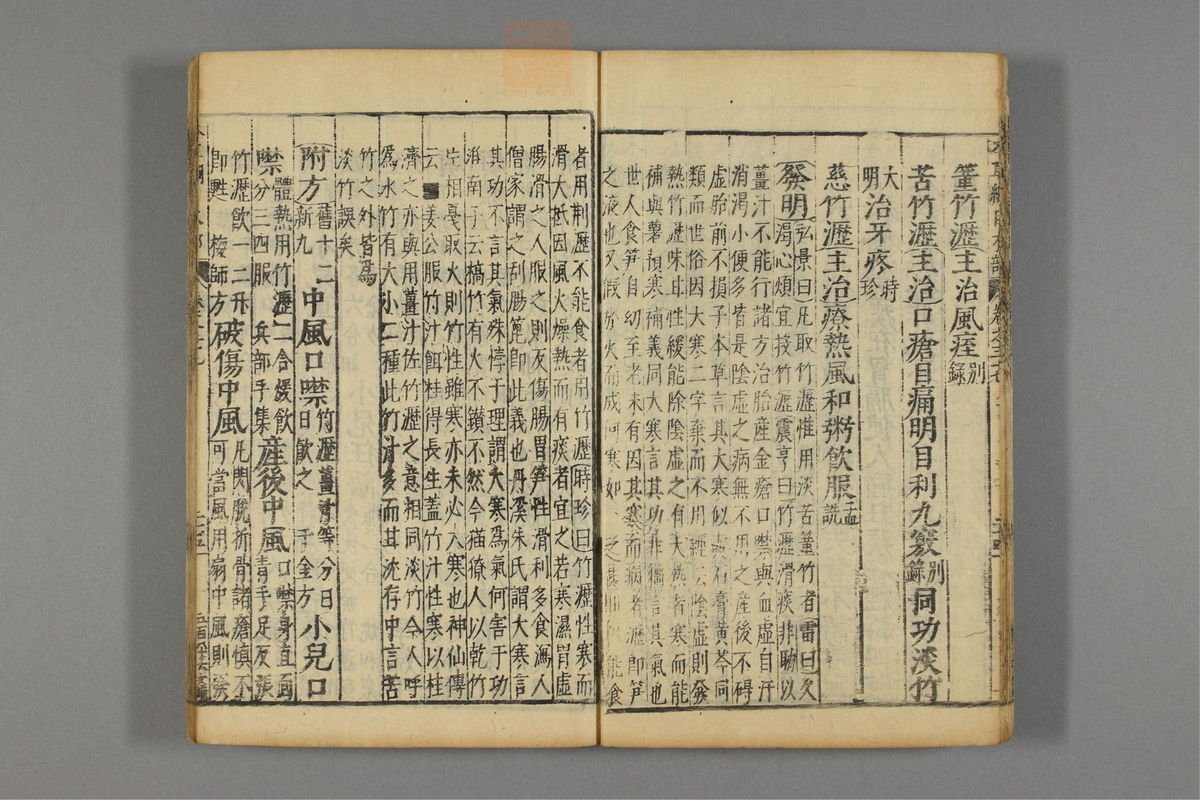 篁竹瀝主治風痓別錄
苦竹瀝主治口瘡目痛明目利九竅別錄同功淡竹
大明治牙疼時珍
慈竹瀝主治療熱風和粥飲服孟詵
發明弘景曰凡取竹瀝惟用淡苦篁竹者雷曰久
渴心煩宜投竹瀝震亨曰竹瀝滑痰非助以
薑汁不能行諸方治胎産金瘡口禁與血虛自汗
消渴小便多皆是陰虛之病無不用之産後不礙
虛胎前不損子本草言其大寒似石膏黃芩同
類而世俗因大寒二字棄而不用經云陰虛則發
熱竹瀝味甘性緩能除陰虛之有大熱者寒而能
補與薯蕷寒補義同大寒言其功非獨言其氣也
世人食笋自幼至老未有因其寒而病者瀝即笋
之液也又假於火而成何寒如此之甚耶但能食
者用荆瀝不能食者用竹瀝時珍曰竹瀝性寒而
滑大抵因風火燥熱而有痰者宜之若寒濕胃虛
腸滑之人服之則反傷腸胃笋性滑利多食瀉人
僧家謂之刮腸篦即此義也丹溪朱氏謂大寒言
其功不言其氣殊悖于理謂大寒爲氣何害于功
淮南子云槁竹有火不鑚不然今猫獠人以乾竹
片相戞取火則竹性雖寒亦未必大寒也神仙傳
云姜公服竹汁餌桂得長生蓋竹汁性寒以桂
濟之亦與用薑汁佐竹瀝之意相同淡竹今人呼
爲水竹有大小二種此竹汁多而甘沈存中言苦
竹之外皆爲
淡竹誤矣
附方舊十二新九中風口噤竹瀝薑汁等分日日飲之千金方小兒口
噤體熱用竹瀝二合煖飲分三四服兵部手集産後中風口噤身直面青手足反張
竹瀝飲一二升即甦梅師方破傷中風凡閃脫折骨諸瘡慎不可當風用扇中風則發